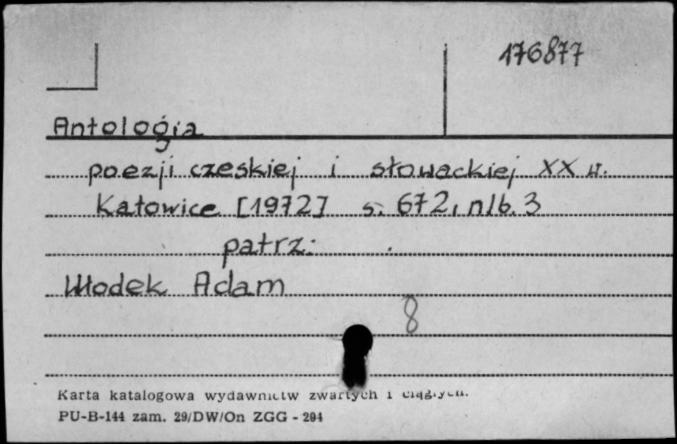 176877
Antologia
poezji czeskiej i słowackiej XX w.
Katowice [1972] s. 672, nlb. 3
patrz:
Włodek Adam
8
Karta katalogowa wydawnictw zwartych i ciągłych.
PU-B-144 zam. 29/DW/On ZGG - 294